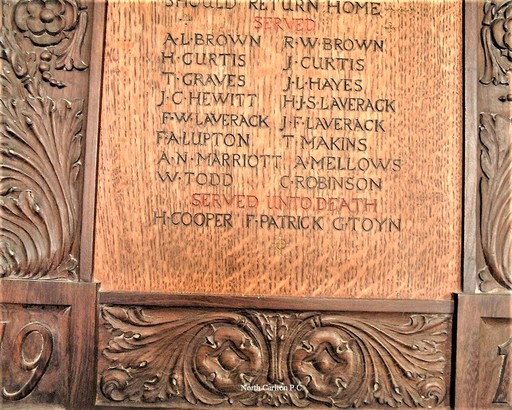 SHOULD RETURN HOME
SERVED
A·L·BROWN R·W·BROWN
H·CURTIS J·CURTIS
T·GRAVES J·L·HAYES
J·C·HEWITT H·J·S·LAVERACK
F·W·LAVERACK J·F·LAVERACK
F·A·LUPTON T·MAKINS
A·N·MARRIOTT A·MELLOWS
W·TODD C·ROBINSON
SERVED UNTO DEATH
H·COOPER F·PATRICK G·TOYN
19 1
North Carlton P.C.